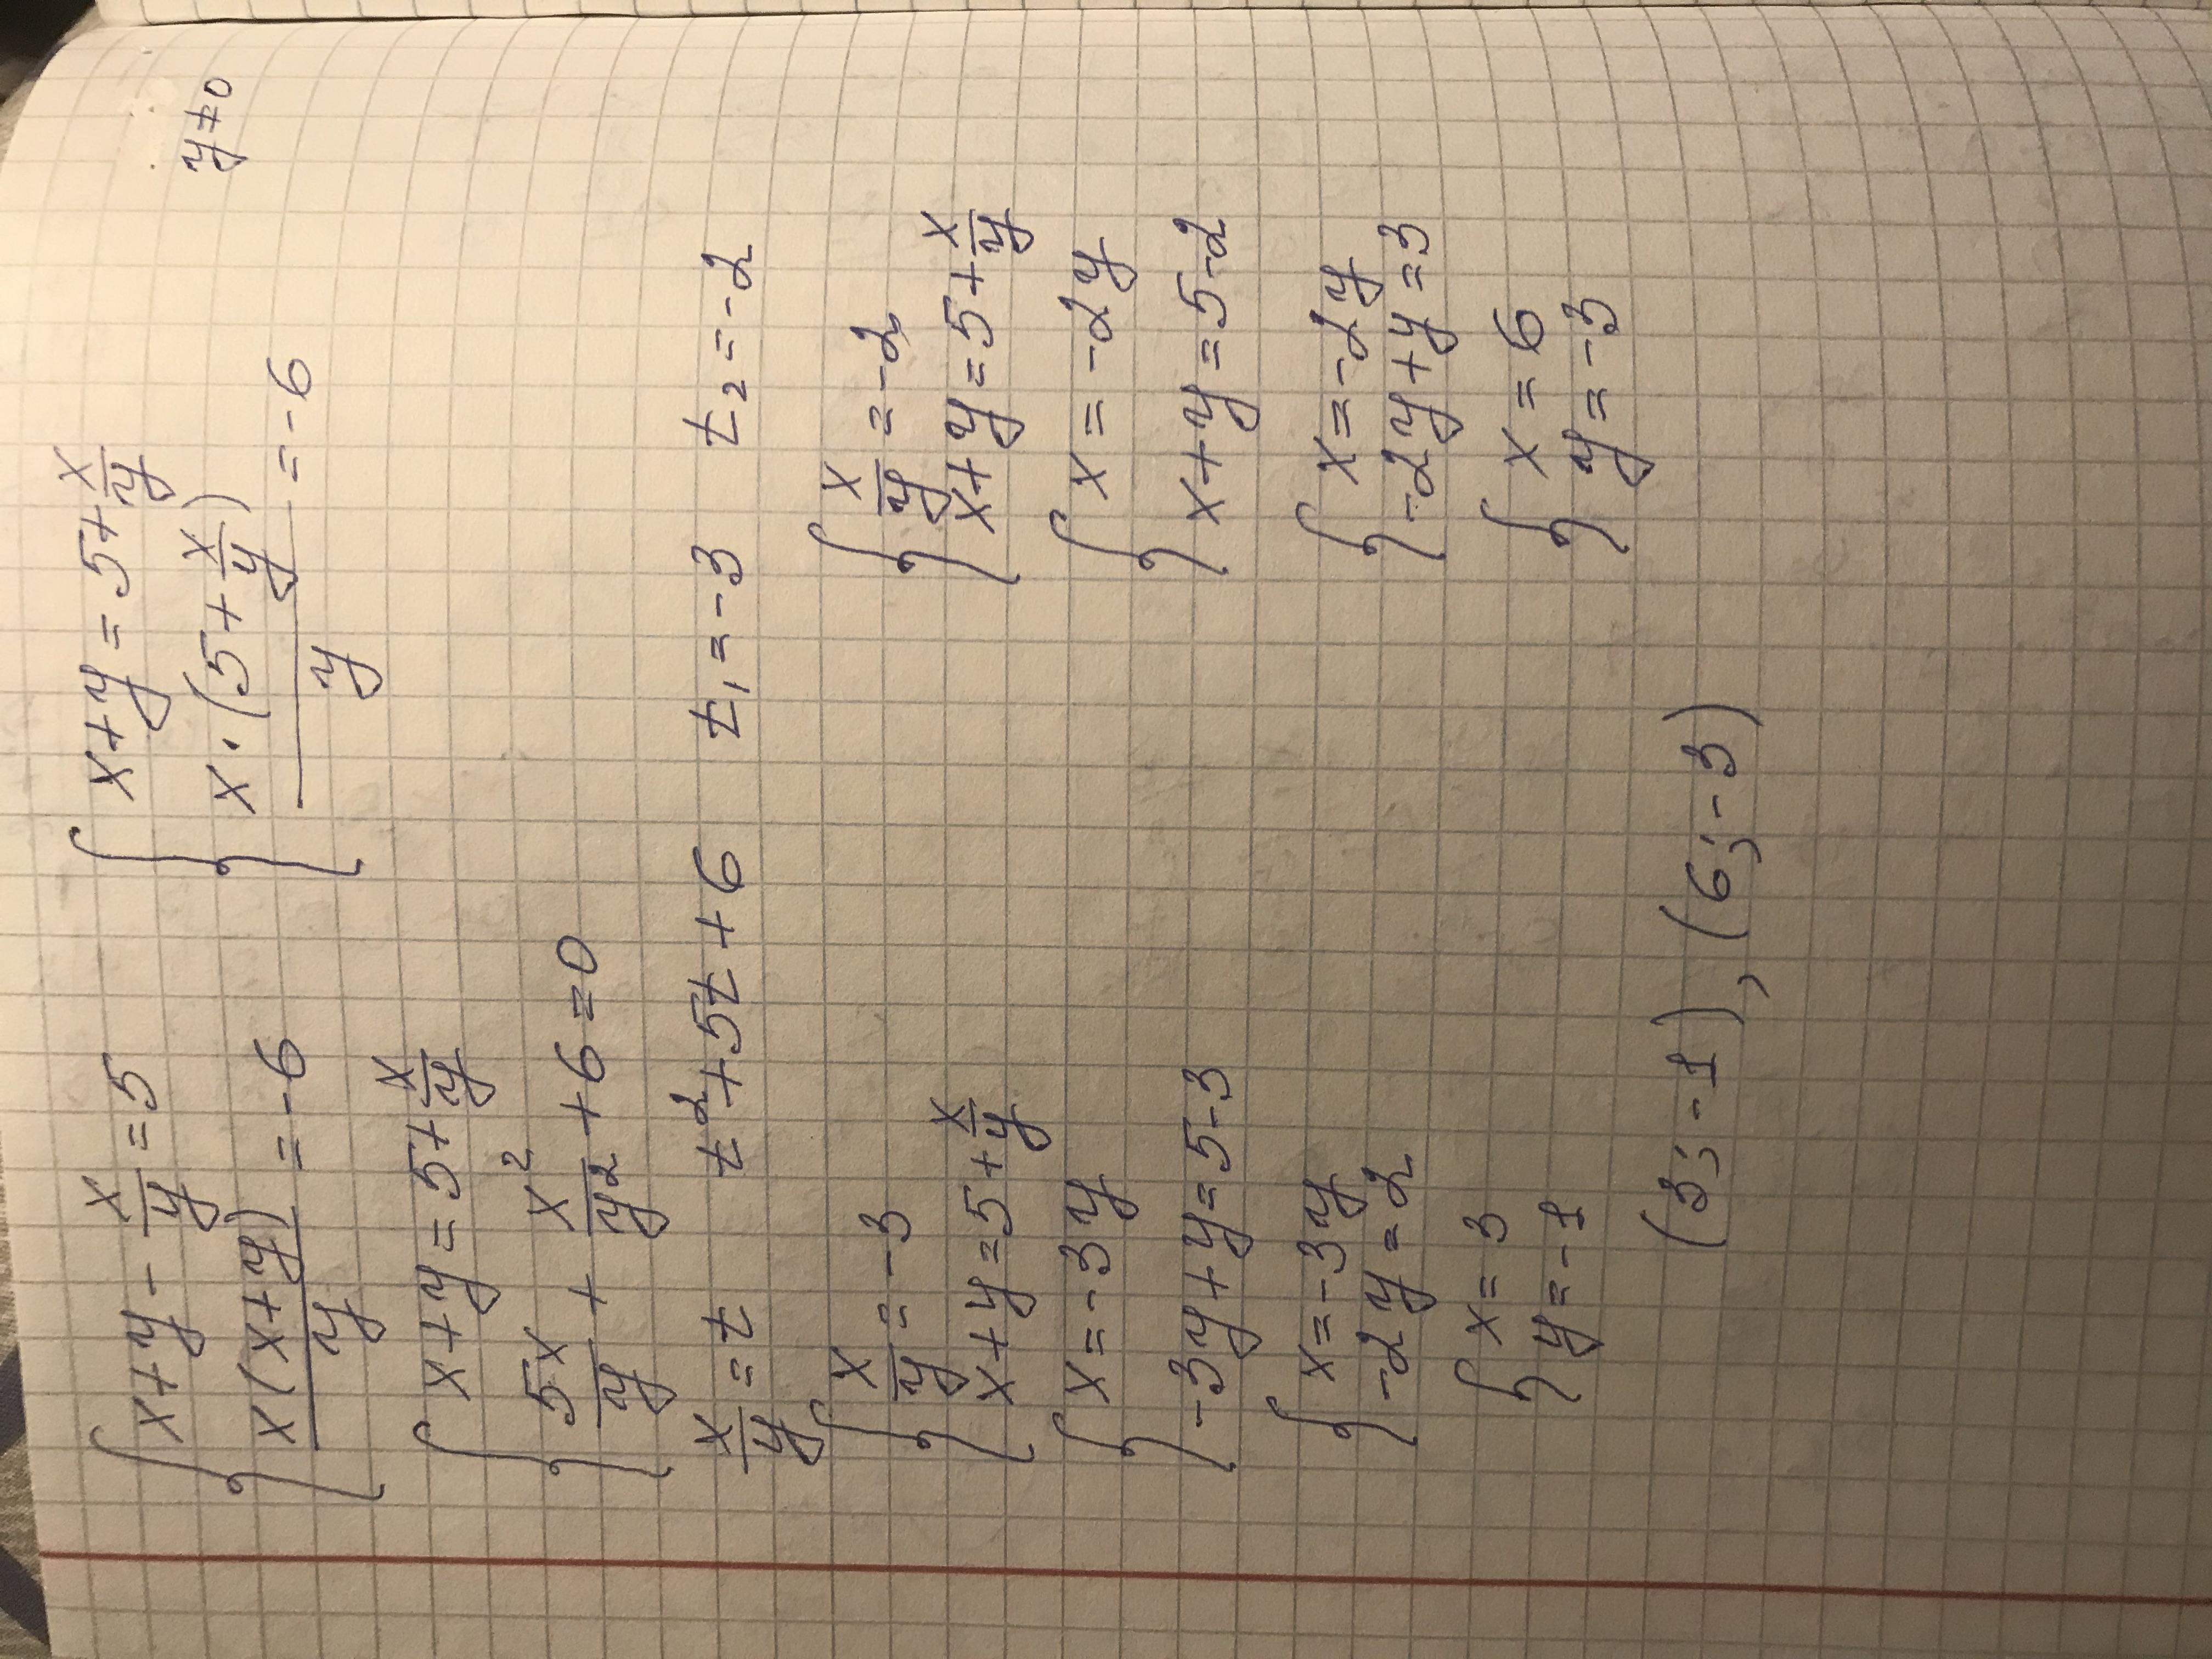 { x+y - x/y = 5
x(x+y)/y = -6
{ x+y = 5 + x/y
x·(5 + x/y)/y = -6
y≠0
{ x+y = 5 + x/y
5x/y + x²/y² + 6 = 0
x/y = t    t² + 5t + 6    t₁ = -3    t₂ = -2
{ x/y = -3
x+y = 5 + x/y
{ x = -3y
-3y + y = 5-3
{ x = -3y
-2y = 2
{ x = 3
y = -1
{ x/y = -2
x+y = 5 + x/y
{ x = -2y
x+y = 5-2
{ x = -2y
-2y+y = 3
{ x = 6
y = -3
(3; -1), (6; -3)